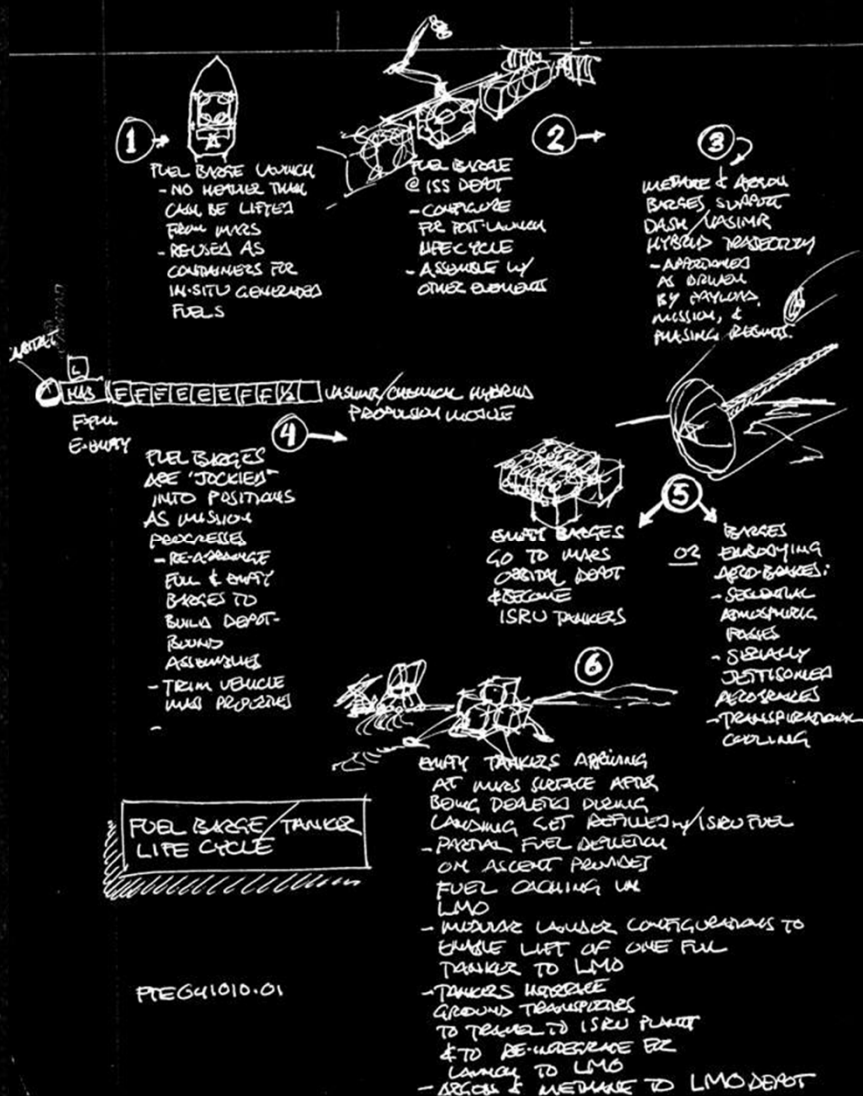 1
FUEL BARGE LAUNCH
- NO HEAVIER THAN
CAN BE LIFTED
FROM MARS
- REUSED AS
CONTAINERS FOR
IN-SITU GENERATED
FUELS
2
FUEL BARGE
@ ISS DEPOT
- CONFIGURE
FOR POST-LAUNCH
LIFECYCLE
- ASSEMBLE W/
OTHER ELEMENTS
3
METHANE & ARGON
BARGES SUPPORT
DASH/VASIMR
HYBRID TRAJECTORY
- APPORTIONED
AS DRIVEN
BY PAYLOAD,
MISSION, &
PHASING REQMTS.
L
HAB F F F E E E F F 1/2 VASIMR/CHEMICAL HYBRID
PROPULSION MODULE
F=FULL
E=EMPTY
4
FUEL BARGES
ARE "JOCKIED"
INTO POSITIONS
AS MISSION
PROGRESSES
- RE-ARRANGE
FULL & EMPTY
BARGES TO
BUILD DEPOT-
BOUND
ASSEMBLIES
- TRIM VEHICLE
MASS PROPERTIES
-
5
EMPTY BARGES
GO TO MARS
ORBITAL DEPOT
& BECOME
ISRU TANKERS
OR
BARGES
EMBODYING
AERO-BRAKES:
- SEQUENTIAL
ATMOSPHERIC
PASSES
- SERIALLY
JETTISONED
AEROBRAKES
- TRANSPIRATIONAL
COOLING
6
EMPTY TANKERS ARRIVING
AT MARS SURFACE AFTER
BEING DEPLETED DURING
LANDING GET REFILLED W/ISRU FUEL
- PARTIAL FUEL DEPLETION
ON ASCENT PROVIDES
FUEL CACHING IN
LMO
- MODULAR LANDER CONFIGURATIONS TO
ENABLE LIFT OF ONE FULL
TANKER TO LMO
- TANKERS INTERFACE
GROUND TRANSPORTERS
TO TRAVEL TO ISRU PLANT
& TO RE-INTEGRATE FOR
LAUNCH TO LMO
- ARGON & METHANE TO LMO DEPOT
FUEL BARGE/TANKER
LIFE CYCLE
PTEG41010.01